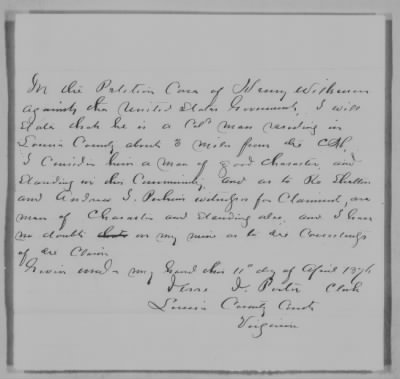 In the Petition Case of Henry Wilkerson
against the United States Government, I will
state that he is a Col^d man residing in
Louisa County about 3 miles from the C.H.
I Consider him a man of good character and
standing in this Community, and as to
and Andrew J. Perkins witnesses for Claimant, are
men of Character and standing also and I have
no doubt on my mind as to the Correctness
of the Claim
Given under my hand this 11th day of April 1876
Jesse J. Porter Clerk
Louisa County Court
Virginia